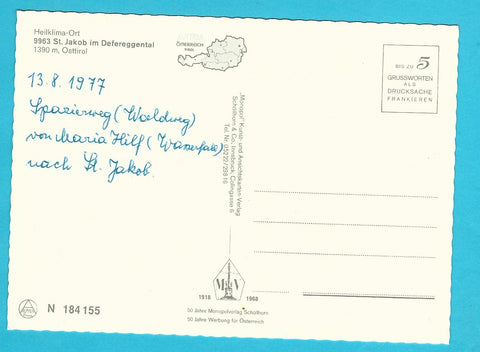 Heilklima-Ort
9963 St. Jakob im Defereggental
1390 m, Osttirol
ÖSTERREICH
13.8.1977
Spazierweg (Waldweg)
von Maria Hilf (Wasserfall)
nach St. Jakob.
"Monopol" Kunst- und Ansichtskarten-Verlag
Schöllhorn & Co, Innsbruck, Collingasse 6
BIS ZU 5
GRUSSWORTEN
ALS
DRUCKSACHE
FRANKIEREN
1918 1968
50 Jahre Monopolverlag Schöllhorn
50 Jahre Werbung für Österreich
N 184 155